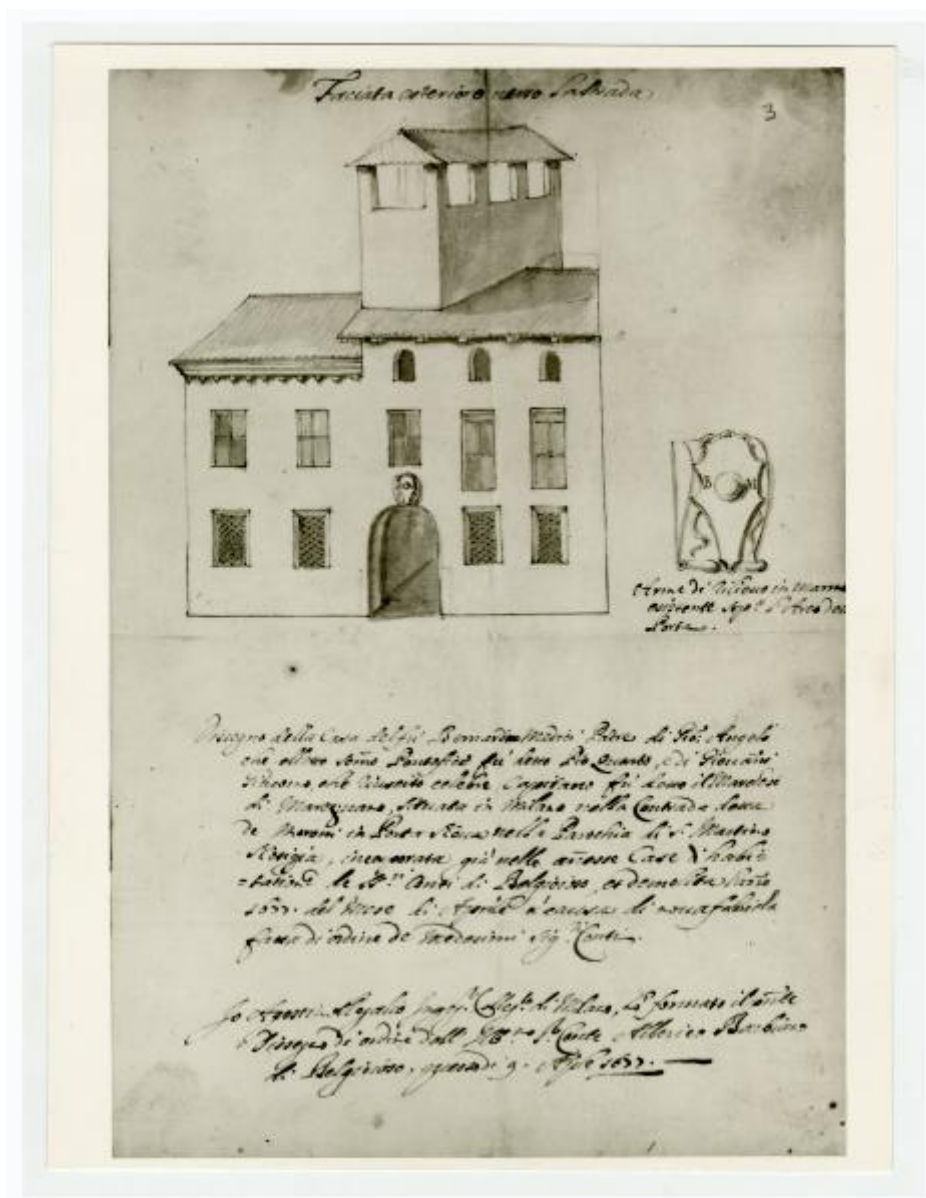 Faciata esteriore verso la strada
3
B M
Arme di rilievo in Marmo
esistente sop.ª l'Arco della
Porta.
Disegno della Casa del fù Bernardin Medici Padre di Gio: Angelo
che assonto Pontefice fù detto Pio Quarto, e di Giovanni
che riuscito celebre Capitano fù detto il Marchese
di Maregnano, situata in Milano nella Contrada detta
de Moroni in Porta nella Parochia di S. Martino
Nosigia, incorporata già nelle Case d'habi-
-tatione de Conti di Belgioioso, et demolita l'anno
1677. del Mese di Aprile à causa di nova fabrica
fatta d'ordine de medesimi Sig.ri Conti.
Io di Milano, hò formato il
Disegno d'ordine dell' Sr. Conte Alberico Barbiano
di Belgioioso. questo dì 9. Aple 1677.